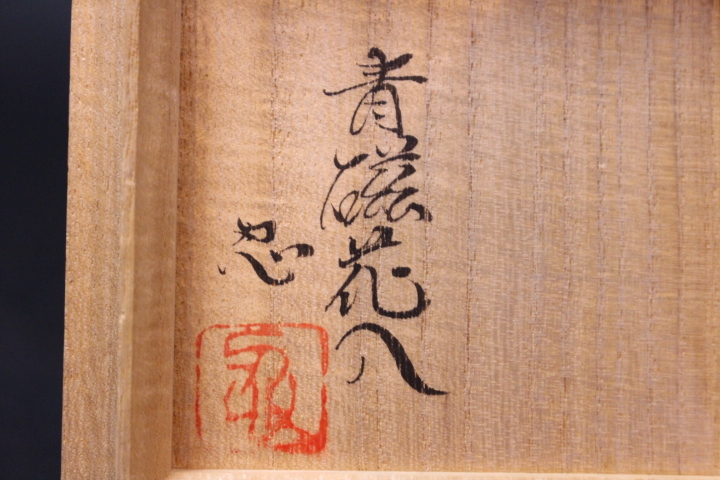 青磁花入
忍